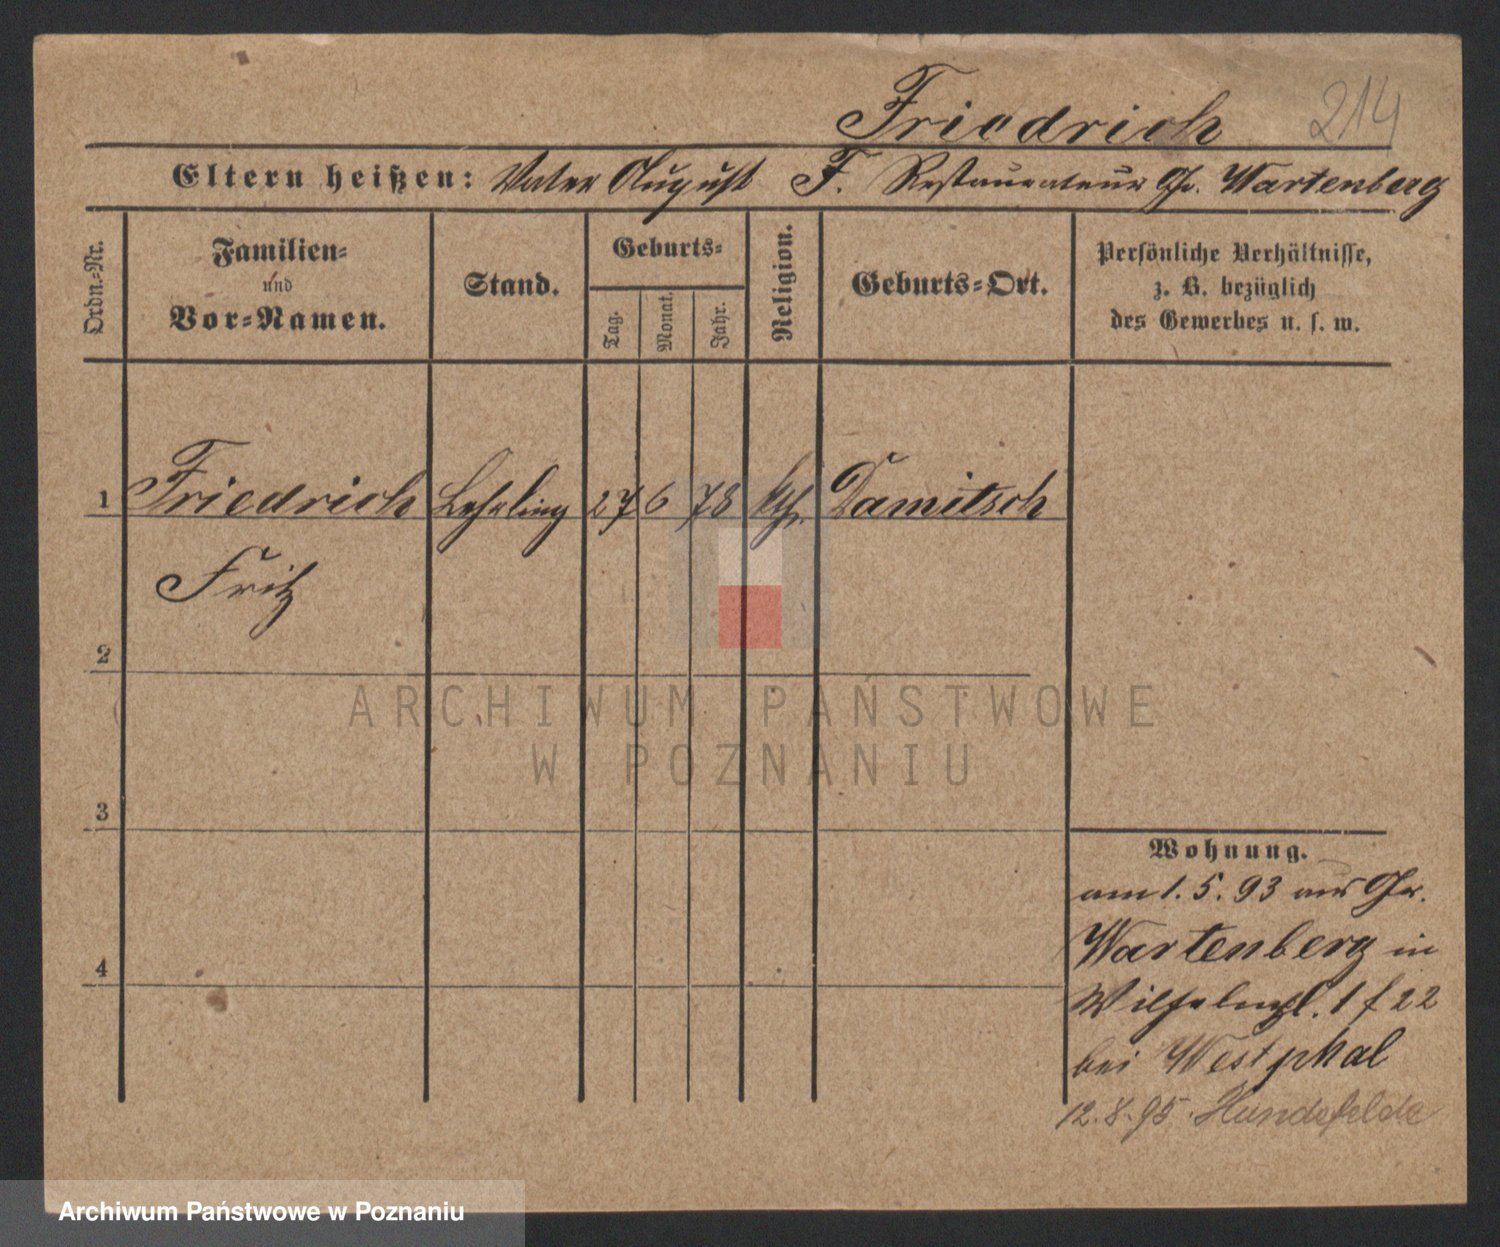 Friedrich 214
Eltern heißen: Vater August F. Restaurateur Gr. Wartenberg
Ordn.-Nr.
Familien-
und
Vor-Namen.
Stand.
Geburts-
Tag.
Monat.
Jahr.
Religion.
Geburts-Ort.
Persönliche Verhältnisse,
z. B. bezüglich
des Gewerbes u. s. w.
1 Friedrich Lehrling 27 6 78 kth. Damitsch
Fritz
2
3
4
Wohnung.
am 1. 5. 93 aus Gr.
Wartenberg in
Wilhelmpl. 1 f 22
bei Westphal
12. 8. 95. Hundsfelde
ARCHIWUM PAŃSTWOWE
W POZNANIU
Archiwum Państwowe w Poznaniu